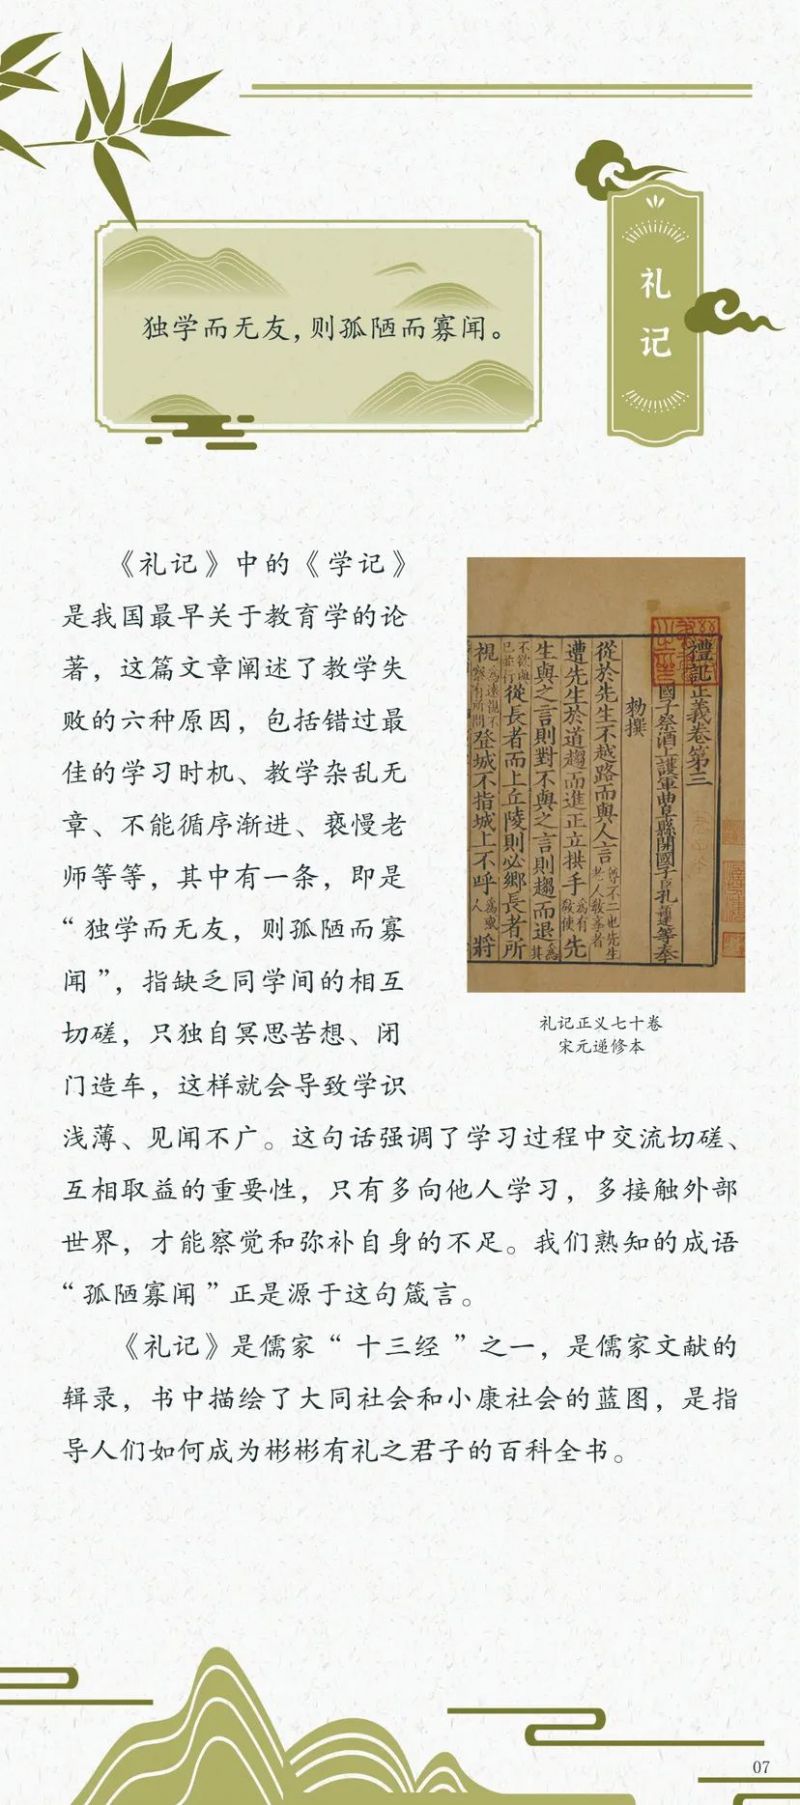 独学而无友,则孤陋而寡闻。
礼记
《礼记》中的《学记》
是我国最早关于教育学的论
著，这篇文章阐述了教学失
败的六种原因，包括错过最
佳的学习时机、教学杂乱无
章、不能循序渐进、亵慢老
师等等，其中有一条，即是
“独学而无友，则孤陋而寡
闻”，指缺乏同学间的相互
切磋，只独自冥思苦想、闭
门造车，这样就会导致学识
浅薄、见闻不广。这句话强调了学习过程中交流切磋、
互相取益的重要性，只有多向他人学习，多接触外部
世界，才能察觉和弥补自身的不足。我们熟知的成语
“孤陋寡闻”正是源于这句箴言。
《礼记》是儒家“十三经”之一，是儒家文献的
辑录，书中描绘了大同社会和小康社会的蓝图，是指
导人们如何成为彬彬有礼之君子的百科全书。
禮記正義卷第三
國子祭酒上護軍曲阜縣開國子臣孔穎達等奉
勑撰
從於先生不越路而與人言
遭先生於道趨而進正立拱手先
生與之言則對不與之言則趨而退
從長者而上丘陵則必鄉長者所
視登城不指城上不呼將
礼记正义七十卷
宋元递修本
07